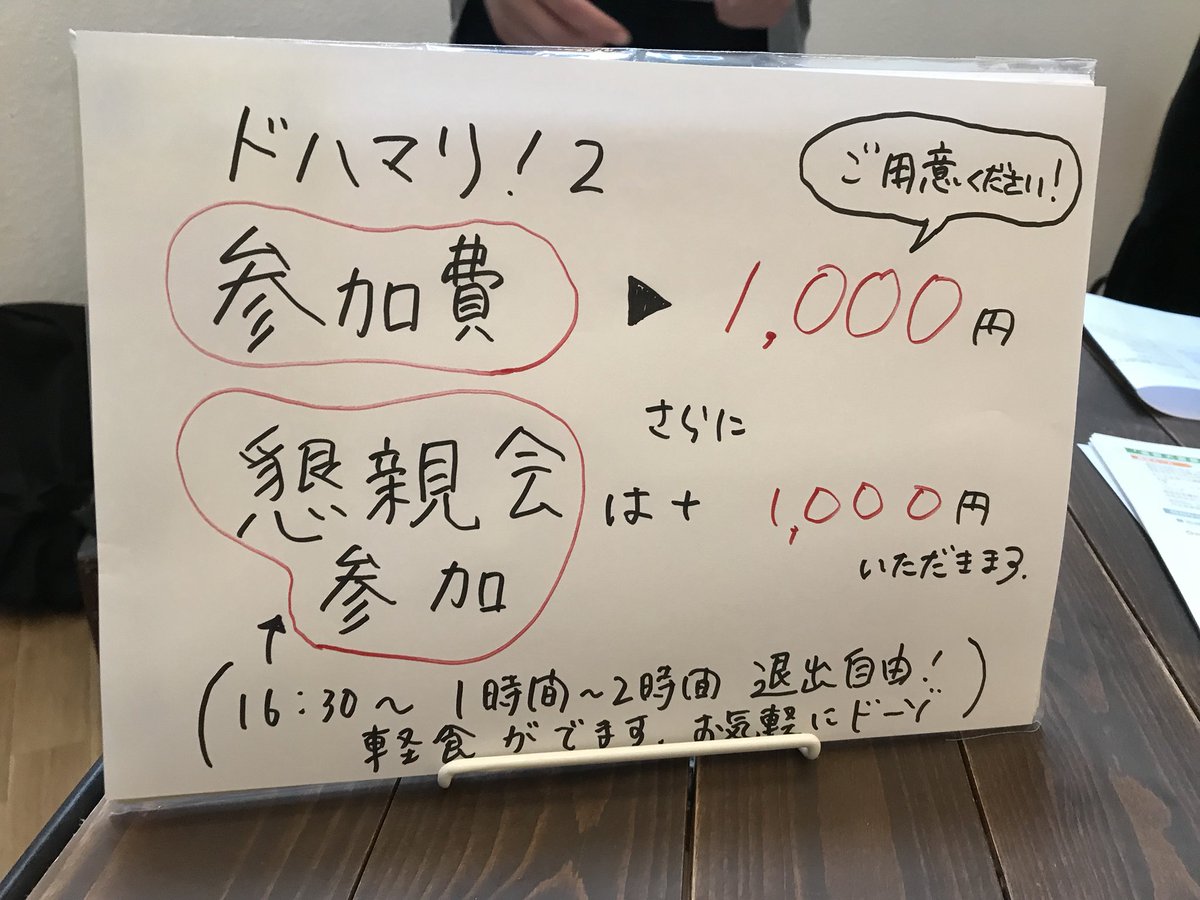 ドハマリ!2
ご用意ください!
参加費 ▶ 1,000円
さらに
懇親会 は + 1,000円
参加
いただきます.
↑
(16:30～ 1時間～2時間 退出自由!
軽食がでます. お気軽にドーゾ)